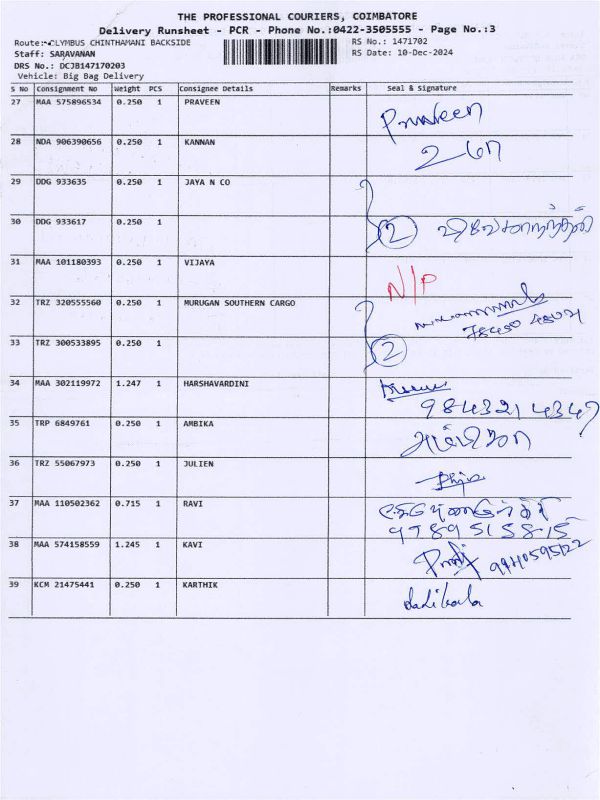 THE PROFESSIONAL COURIERS, COIMBATORE
Delivery Runsheet - PCR - Phone No.:0422-3505555 - Page No.:3
Route: OLYMBUS CHINTHAMANI BACKSIDE RS No.: 1471702
Staff: SARAVANAN RS Date: 10-Dec-2024
DRS No.: DCJB147170203
Vehicle: Big Bag Delivery
S No Consignment No Weight PCS Consignee Details Remarks Seal & Signature
27 MAA 575896534 0.250 1 PRAVEEN Praveen
28 NDA 906390656 0.250 1 KANNAN
29 DDG 933635 0.250 1 JAYA N CO
30 DDG 933617 0.250 1 2
31 MAA 101180393 0.250 1 VIJAYA N/P
32 TRZ 320555560 0.250 1 MURUGAN SOUTHERN CARGO
33 TRZ 300533895 0.250 1 2
34 MAA 302119972 1.247 1 HARSHAVARDINI
9843214347
35 TRP 6849761 0.250 1 AMBIKA
36 TRZ 55067973 0.250 1 JULIEN
37 MAA 110502362 0.715 1 RAVI
9789515815
38 MAA 574158559 1.245 1 KAVI
39 KCM 21475441 0.250 1 KARTHIK